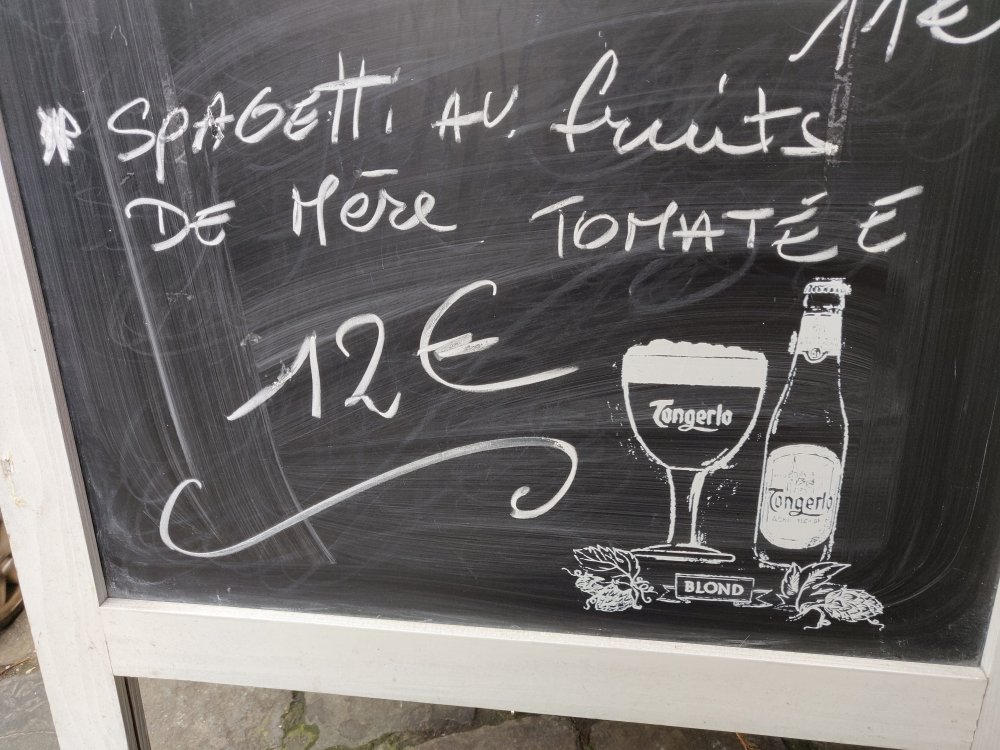 11€
* SPAGETTI AU fruits
DE Mère TOMATÉ É
12€
Tongerlo
Tongerlo
BLOND